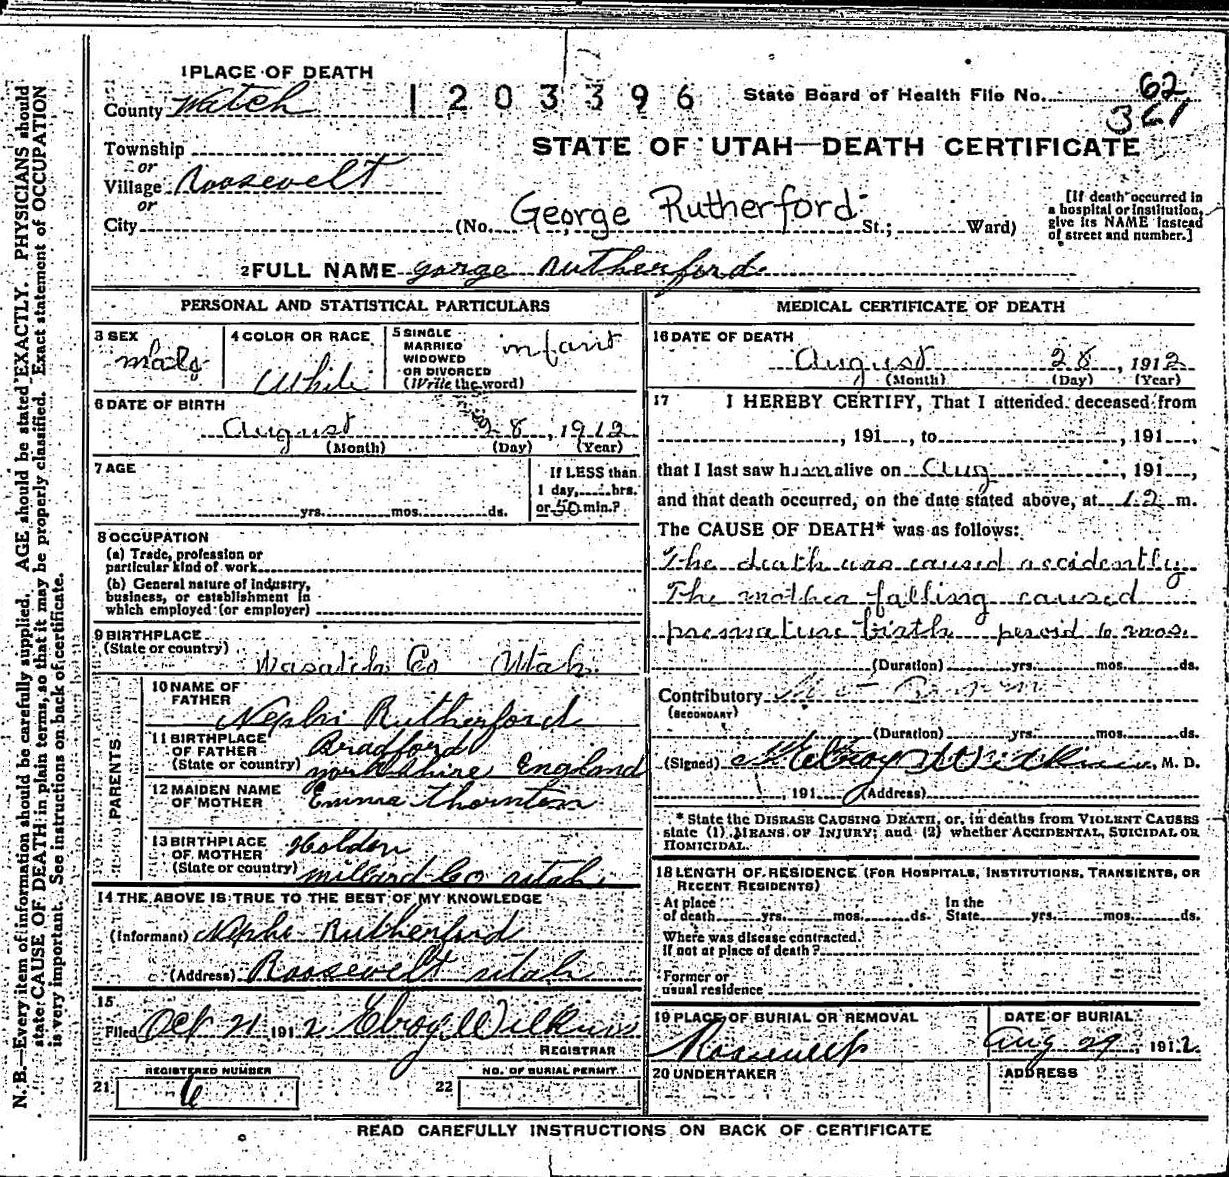 1 PLACE OF DEATH
County Watch
1203396
State Board of Health File No. 62
361
STATE OF UTAH—DEATH CERTIFICATE
Township
or
Village Roosevelt
or
City (No. George Rutherford St.; Ward)
[If death occurred in a hospital or institution, give its NAME instead of street and number.]
2 FULL NAME gorge Rutherford
PERSONAL AND STATISTICAL PARTICULARS
3 SEX
male
4 COLOR OR RACE
White
5 SINGLE
MARRIED
WIDOWED
OR DIVORCED
(Write the word)
infant
6 DATE OF BIRTH
August 28, 1912
(Month) (Day) (Year)
7 AGE
yrs. mos. ds.
If LESS than
1 day, hrs.
or 50 min.?
8 OCCUPATION
(a) Trade, profession or
particular kind of work
(b) General nature of industry,
business, or establishment in
which employed (or employer)
9 BIRTHPLACE
(State or country)
Wasatch Co Utah
PARENTS
10 NAME OF
FATHER
Nephi Rutherford
11 BIRTHPLACE
OF FATHER
(State or country)
Bradford
yorkshire England
12 MAIDEN NAME
OF MOTHER
Emma Thornton
13 BIRTHPLACE
OF MOTHER
(State or country)
Holden
millard Co utah
14 THE ABOVE IS TRUE TO THE BEST OF MY KNOWLEDGE
(Informant) Nephi Rutherford
(Address) Roosevelt utah
15
Filed Oct 21 1912 Elroy Wilkins
REGISTRAR
REGISTERED NUMBER
21 6
NO. OF BURIAL PERMIT
22
MEDICAL CERTIFICATE OF DEATH
16 DATE OF DEATH
August 28, 1912
(Month) (Day) (Year)
17 I HEREBY CERTIFY, That I attended deceased from
, 191 , to , 191 ,
that I last saw him alive on Aug , 191 ,
and that death occurred, on the date stated above, at 12 m.
The CAUSE OF DEATH* was as follows:
The death was caused accidently
The mother falling caused
premature birth peroid 6 mos.
(Duration) yrs. mos. ds.
Contributory
(SECONDARY)
(Duration) yrs. mos. ds.
(Signed) Elroy Wilkins, M. D.
, 191 (Address)
* State the DISEASE CAUSING DEATH, or, in deaths from VIOLENT CAUSES
state (1) MEANS OF INJURY; and (2) whether ACCIDENTAL, SUICIDAL OR
HOMICIDAL.
18 LENGTH OF RESIDENCE (FOR HOSPITALS, INSTITUTIONS, TRANSIENTS, OR
RECENT RESIDENTS)
At place
of death yrs. mos. ds.
In the
State yrs. mos. ds.
Where was disease contracted.
If not at place of death?
Former or
usual residence
19 PLACE OF BURIAL OR REMOVAL
Roosevelt
DATE OF BURIAL
Aug 29, 1912
20 UNDERTAKER
ADDRESS
READ CAREFULLY INSTRUCTIONS ON BACK OF CERTIFICATE
N. B.—Every item of information should be carefully supplied. AGE should be stated EXACTLY. PHYSICIANS should
state CAUSE OF DEATH in plain terms, so that it may be properly classified. Exact statement of OCCUPATION
is very important. See instructions on back of certificate.